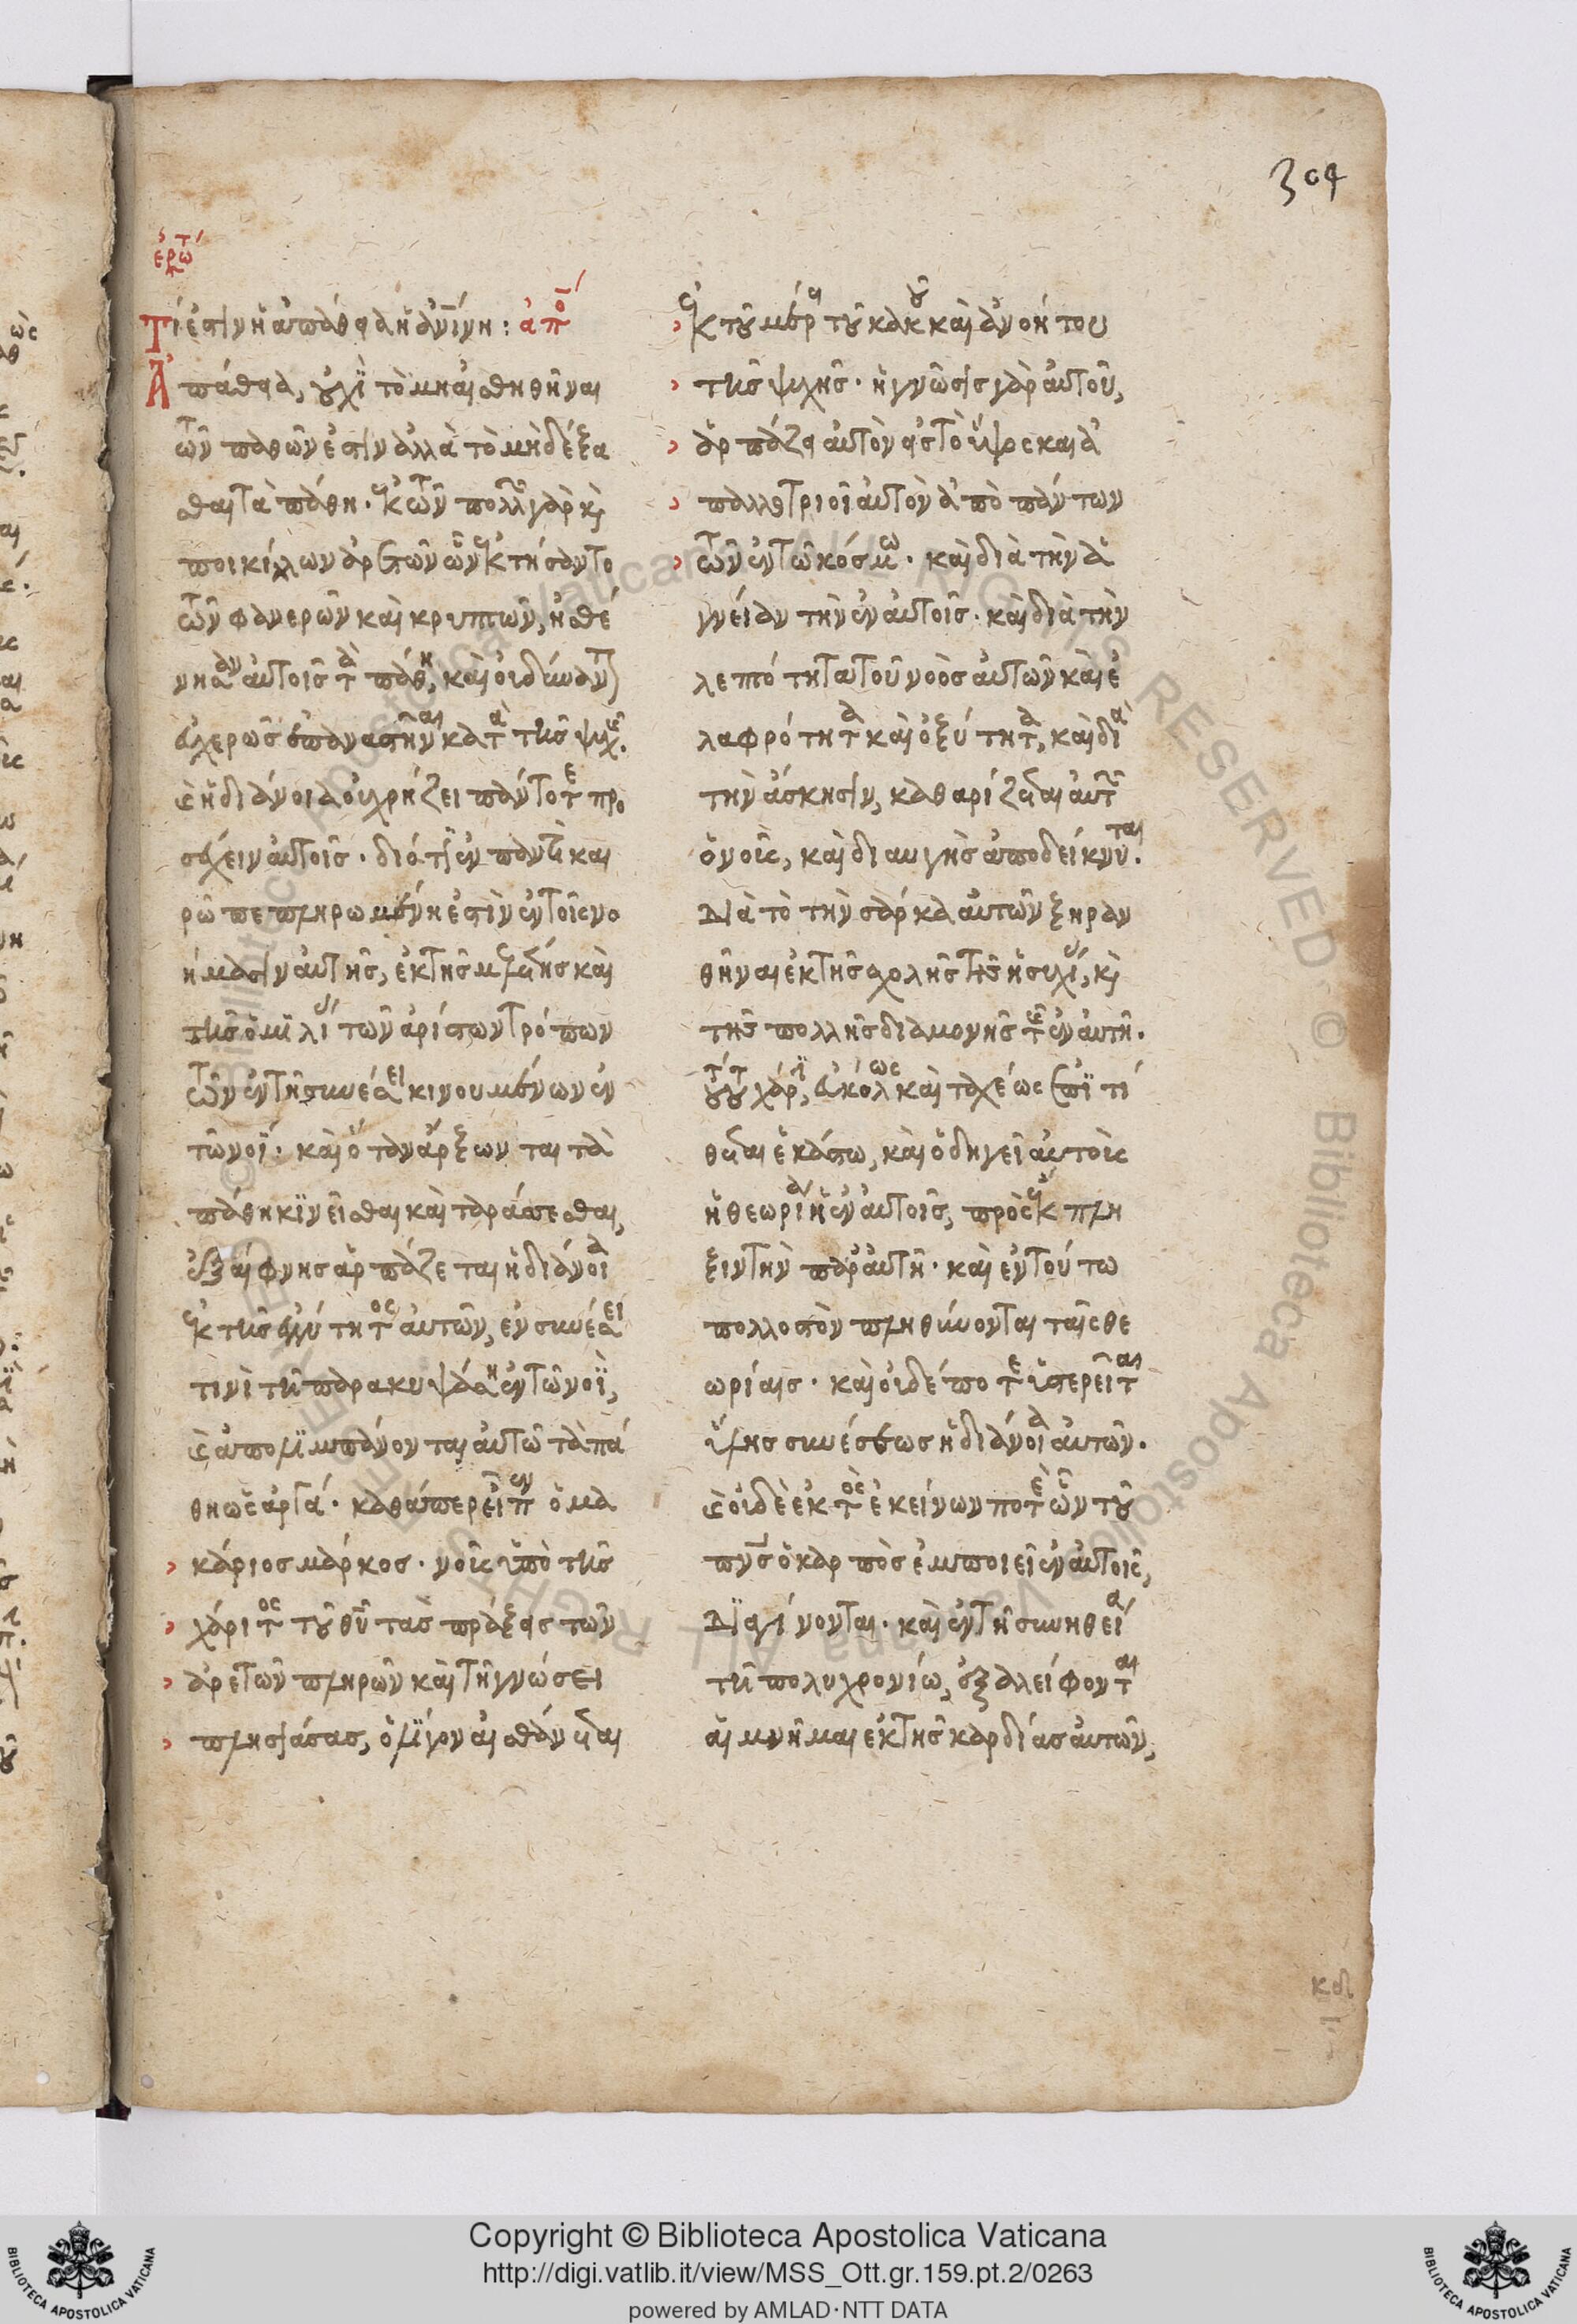 304
ἐρωτ
Τί ἐστιν ἡ ἀπάθεια ἡ ἀνίνη: ἀπο
Ἀπάθεια, οὐχὶ τὸ μὴ αἰσθηθῆναι
τῶν παθῶν ἐστὶν ἀλλὰ τὸ μὴ δέξα
σθαι τὰ πάθη. ἐκ τῶν πολλῶν γὰρ καὶ
ποικίλων ἀρετῶν ὧν ἐκτήσαντο
τῶν φανερῶν καὶ κρυπτῶν, ἠσθέ
νησαν αὐτοῖς τὰ πάθη, καὶ οὐ δύνανται
εὐχερῶς ἐπαναστῆναι κατὰ τῆς ψυχῆς.
καὶ ἡ διάνοια οὐ χρήζει πάντοτε προ
σέχειν αὐτοῖς. διότι ἐν παντὶ και
ρῶ πεπληρωμένη ἐστὶν ἐν τοῖς νο
ήμασιν αὐτῆς, ἐκ τῆς μελέτης καὶ
τῆς ὁμιλίας τῶν ἀρίστων τρόπων
τῶν ἐν τῆ συνέσει κινουμένων ἐν
τῶ νοΐ. καὶ ὅταν ἄρξωνται τὰ
πάθη κινεῖσθαι καὶ ταράσσεσθαι,
ἐξαίφνης ἁρπάζεται ἡ διάνοια
ἐκ τῆς ἐγγύτητος αὐτῶν, ἐν συνέσει
τινὶ τῆ παρακυψάση ἐν τῶ νοΐ,
καὶ ἀπολιμπάνονται αὐτῶ τὰ πά
θη ὡς ἀργά. καθάπερ εἶπεν ὁ μα
κάριος μάρκος. νοῦς ὑπὸ τῆς
χάριτος τοῦ θῦ τὰς πράξεις τῶν
ἀρετῶν πληρῶν καὶ τῆ γνώσει
πλησιάσας, ὀλίγον αἰσθάνεται
ἐκ τοῦ μέρους τοῦ κακοῦ καὶ ἀνοήτου
τῆς ψυχῆς. ἡ γνῶσις γὰρ αὐτοῦ,
ἁρπάζει αὐτὸν εἰς τὸ ὕψος καὶ ἀ
παλλοτριοῖ αὐτὸν ἀπὸ πάντων
τῶν ἐν τῶ κόσμω. καὶ διὰ τὴν ἁ
γνείαν τὴν ἐν αὐτοῖς. καὶ διὰ τὴν
λεπτότητα τοῦ νοὸς αὐτῶν καὶ ἐ
λαφρότητα καὶ ὀξύτητα, καὶ διὰ
τὴν ἄσκησιν, καθαρίζεται αὐτῶν
ὁ νοῦς, καὶ διαυγὴς ἀποδείκνυται.
Διὰ τὸ τὴν σάρκα αὐτῶν ξηραν
θῆναι ἐκ τῆς σχολῆς τῆς ἡσυχίας, καὶ
τῆς πολλῆς διαμονῆς τῆς ἐν αὐτῆ.
τούτου χάριν, εὐκόλως καὶ ταχέως ἐπιτί
θεται ἑκάστω, καὶ ὁδηγεῖ αὐτοὺς
ἡ θεωρία ἡ ἐν αὐτοῖς, πρὸς ἔκπλη
ξιν τὴν παρ' αὐτῆ. καὶ ἐν τούτω
πολλοστὸν πληθύνονται ταῖς θε
ωρίαις. καὶ οὐδέποτε ὑστερεῖται
ὕλης συνέσεως ἡ διάνοια αὐτῶν.
καὶ οὐδὲ ἐκτὸς ἐκείνων ποτὲ ὧν τοῦ
πνς ὁ καρπὸς ἐμποιεῖ ἐν αὐτοῖς,
Διαγίνονται. καὶ ἐν τῆ συνηθεία
τῆ πολυχρονίω, ἐξαλείφονται
αἱ μνῆμαι ἐκ τῆς καρδίας αὐτῶν,
κδ
Copyright © Biblioteca Apostolica Vaticana
http://digi.vatlib.it/view/MSS_Ott.gr.159.pt.2/0263
powered by AMLAD·NTT DATA
BIBLIOTECA APOSTOLICA VATICANA
BIBLIOTECA APOSTOLICA VATICANA